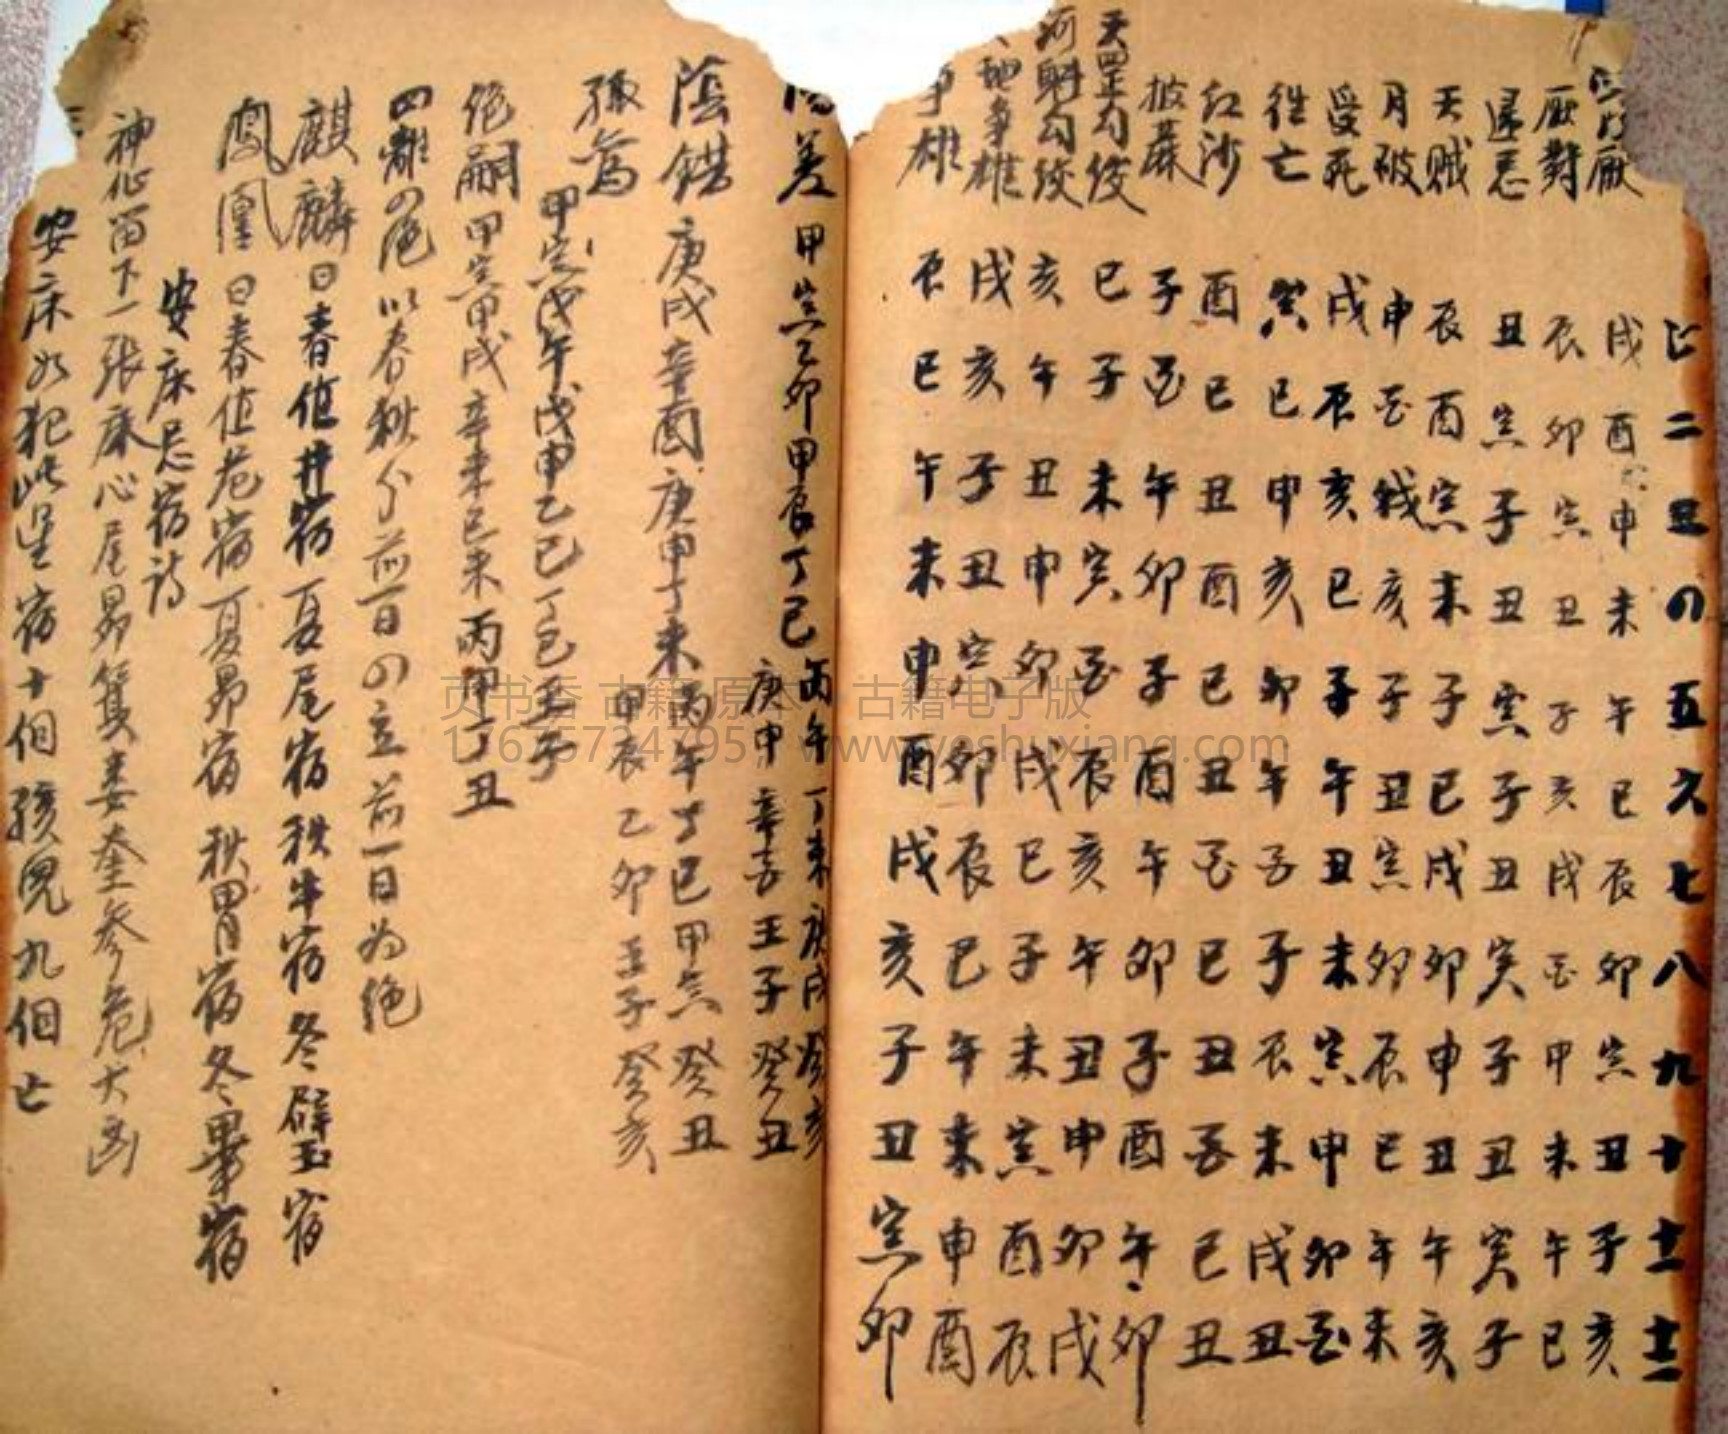 二三の五六七八九十十一十二
厭 戌酉申未午巳辰卯寅丑子亥
厭對 辰卯寅丑子亥戌酉申未午巳
忌 丑寅子丑寅子丑寅子丑寅子
天賊 辰酉寅未子巳戌卯申丑午亥
月破 申酉戌亥子丑寅卯辰巳午未
受死 戌辰亥巳子午丑未寅申卯酉
往亡 寅巳申亥卯午酉子辰未戌丑
紅沙 酉巳丑酉巳丑酉巳丑酉巳丑
披麻 子酉午卯子酉午卯子酉午卯
天罡勾绞 巳子未寅酉辰亥午丑申卯戌
河魁勾绞 亥午丑申卯戌巳子未寅酉辰
地爭雄 戌亥子丑寅卯辰巳午未申酉
爭雄 辰巳午未申酉戌亥子丑寅卯
陽差 甲寅乙卯甲辰丁巳丙午丁未庚戌癸亥
庚申辛酉壬子癸丑
陰錯 庚戌辛酉庚申丁未丙午丁巳甲寅癸丑
甲辰乙卯壬子癸亥
孤鸾 甲寅戊午戊申乙巳丁巳壬子
绝嗣 甲寅甲戌辛未巳未丙申丁丑
四離の绝以春秋分前一日の立前一日为绝
麒麟日春值井宿夏尾宿秋牛宿冬壁宿
鳳凰日春值危宿夏昴宿秋胃宿冬畢宿
安床忌宿诗
神仙留下一張床心尾昴箕婁奎參危大凶
安床如犯此星宿十個孩兒九個亡
古籍电子版
www.yeshuxiang.com